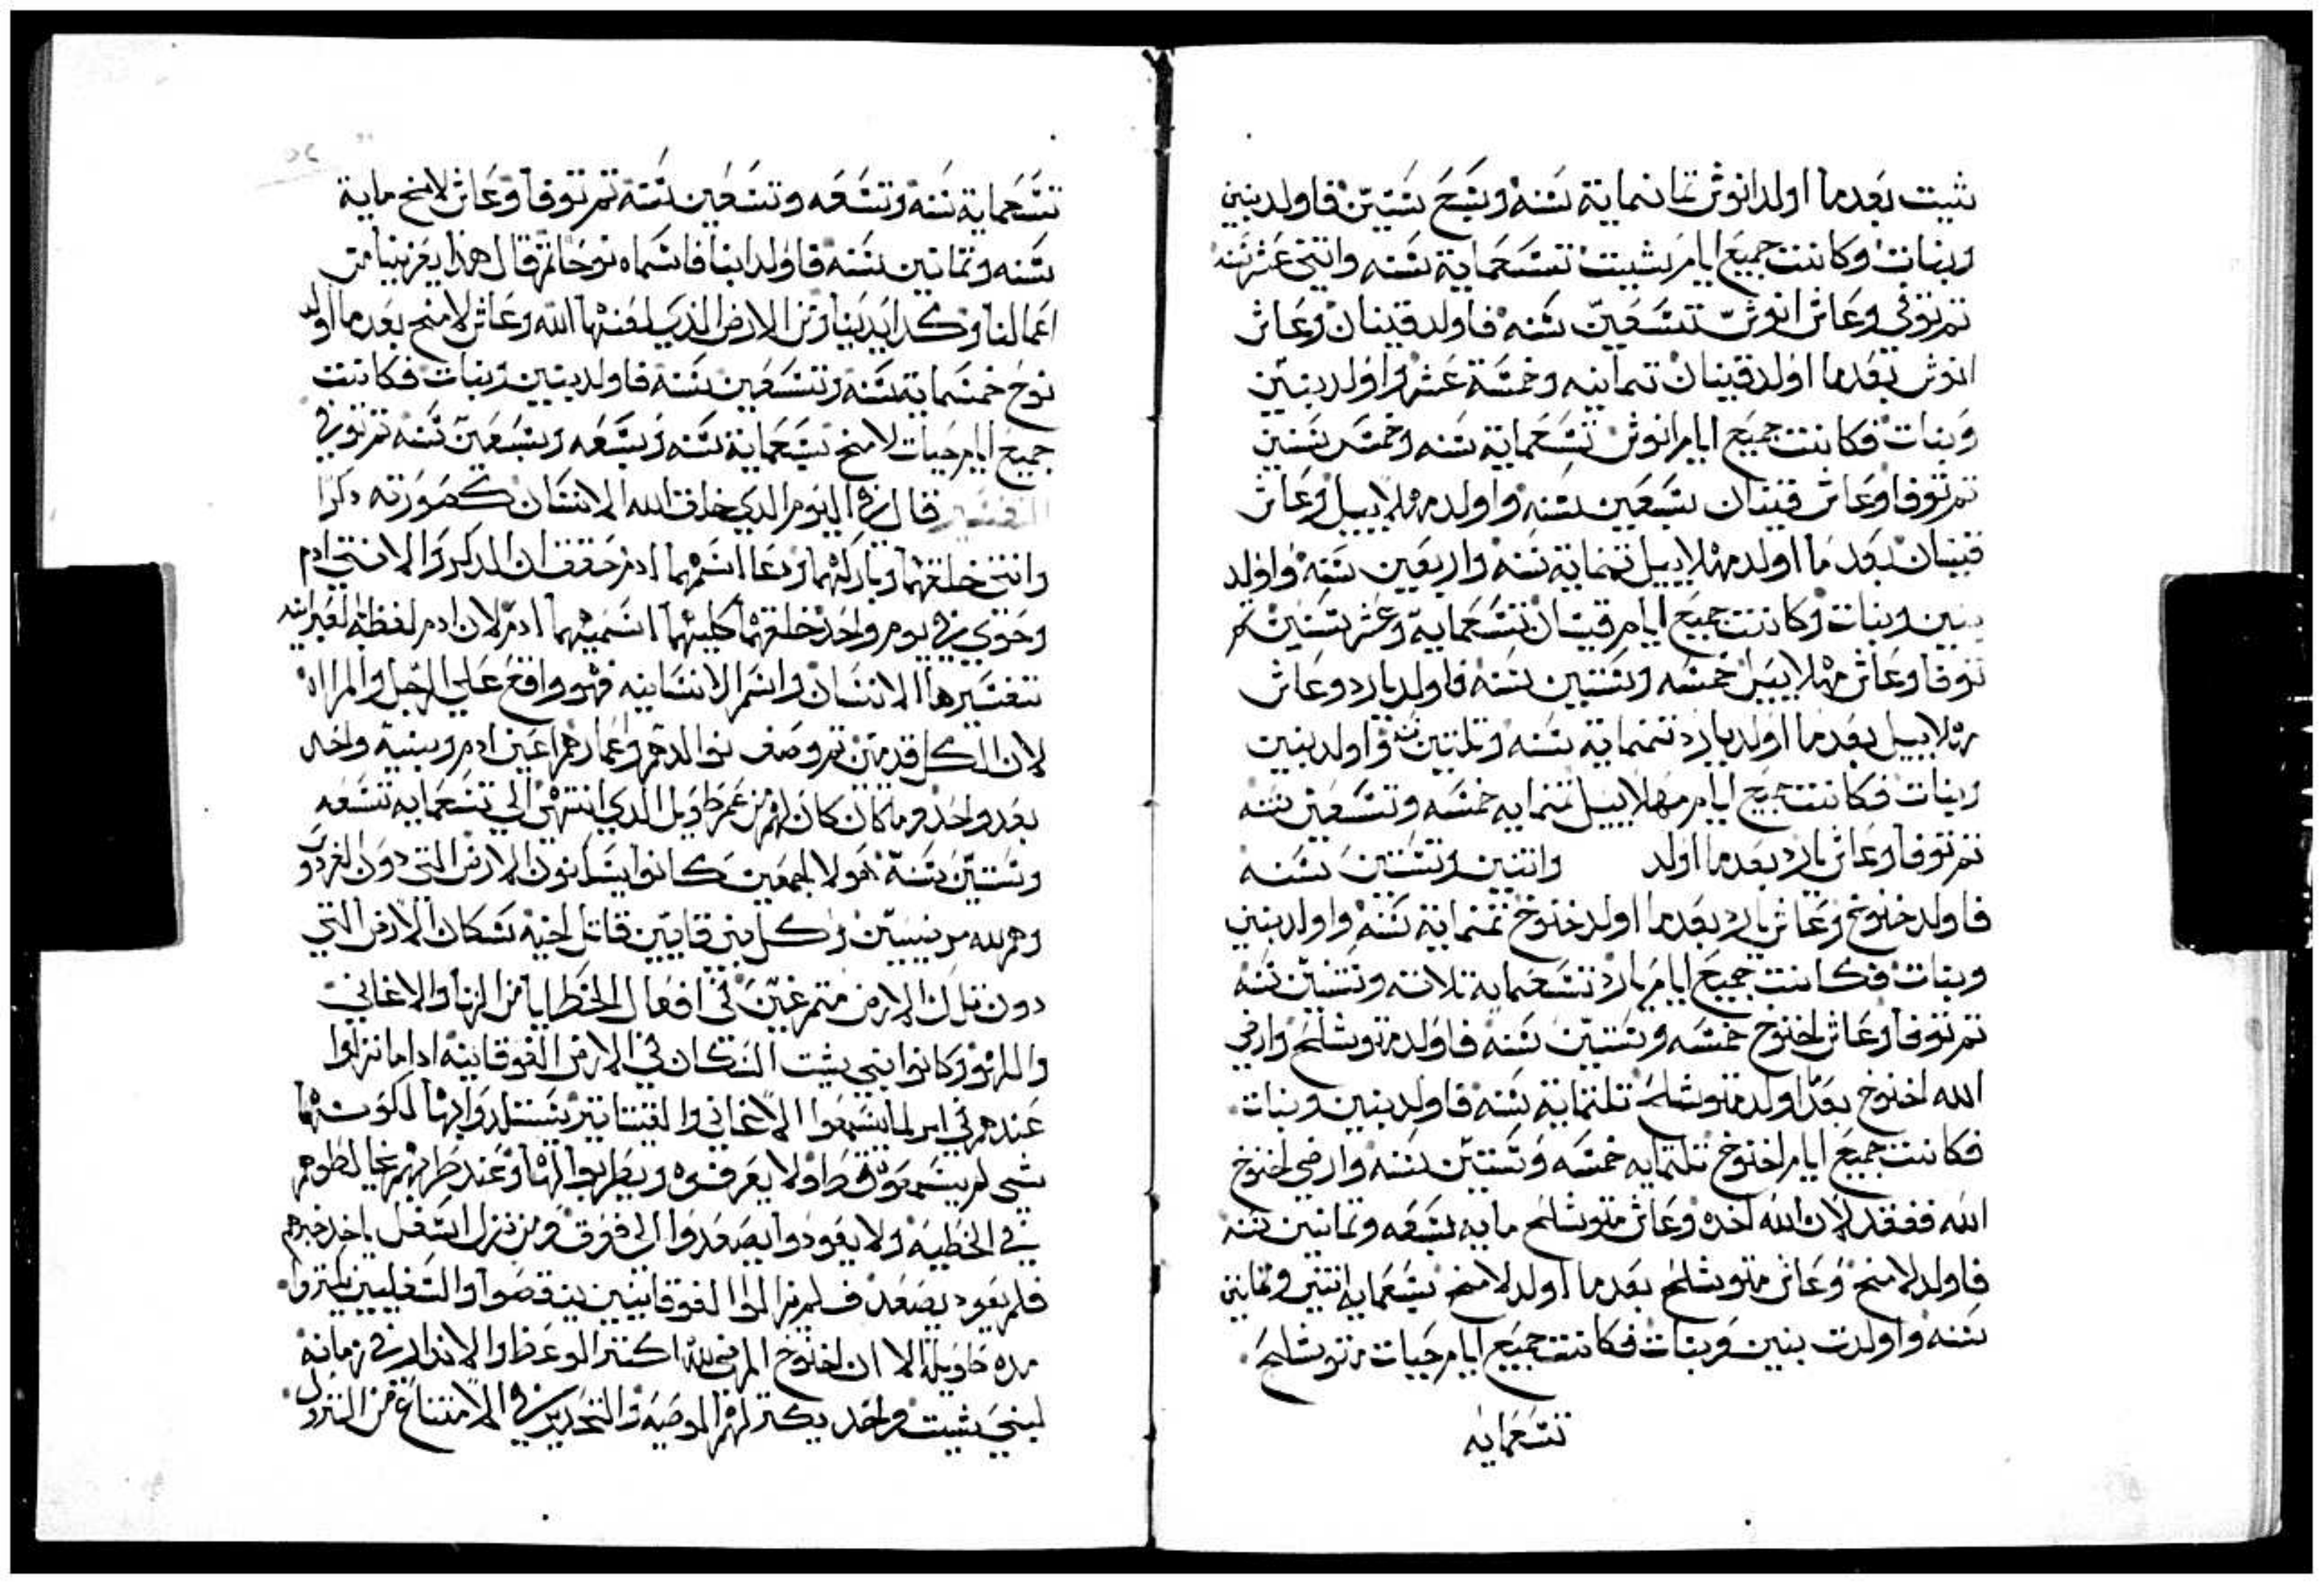 شيت بعدما اولد انوش ثمانماية سنه وسبع سنين فاولد بنين
وبنات وكانت جميع ايام شيت تسعماية سنه واثني عشر سنه
تم توفي وعاش انوش تسعين سنه فاولد قينان وعاش
انوش بعدما اولد قينان تمانيه وخمسة عشر واولد بنين
وبنات فكانت جميع ايام انوش تسعماية سنه وخمسه سنين
تم توفا وعاش قينان سبعين سنه واولد مهلاييل وعاش
قينان بعد ما اولد مهلاييل تمنماية سنه واربعين سنه واولد
بنين وبنات وكانت جميع ايام قينان تسعماية وعشر سنين تم
توفا وعاش مهلاييل خمسه وستين سنه فاولد يارد وعاش
مهلاييل بعدما اولد يارد تمنماية سنه وتلتين سنه واولد بنين
وبنات فكانت جميع ايام مهلاييل تمنمايه خمسه وتسعين سنه
تم توفا وعاش يارد بعدما اولد واتنين وستين سنه
فاولد خنوخ وعاش يارد بعدما اولد خنوخ تمنماية سنه واولد بنين
وبنات فكانت جميع ايام يارد تسعمايه تلاته وستين سنه
تم توفا وعاش اخنوخ خمسه وستين سنه فاولد متوشلح وارضي
الله اخنوخ بعد اولد متوشلح تلتماية سنه فاولد بنين وبنات
فكانت جميع ايام اخنوخ تلتمايه خمسه وستين سنه وارضي اخنوخ
الله ففقد لان الله اخده وعاش متوشلح مايه سبعه وتمانين سنه
فاولد لامخ وعاش متوشلح بعدما اولد لامخ سبعمايه اتنين وتمانين
سنه واولدت بنين وبنات فكانت جميع ايام حيات متوشلح
تسعمايه
تسعماية سنه وتسعه وستين سنة تم توفا وعاش لامخ ماية
سنه وتمانين سنه فاولد ابنا فاسماه نوحا تم قال هذا يعزينا من
اعمالنا وكد ايدينا ومن الارض الذي لعنها الله وعاش لامخ بعدما اولد
نوح خمسماية سنه وتسعين سنه فاولد بنين وبنات فكانت
جميع ايام حيات لامخ سبعماية سنه وسبعه وسبعين سنه تم توفي
التفسير قال في اليوم الدي خلق الله الانسان كصورته دكرا
وانتي خلقهما وباركهما ودعا اسمهما ادم حقق ان الدكر والانتي ادم
وحوي في يوم واحد خلقهما كليهما اسميهما ادم لان ادم لفظه لعبرانيه
تفسيرها الانسان واسم الانسانيه فهو واقع علي الرجل والمراه
لان الكل قد تم وصف توالدهم واعمارهم اعني ادم وبنيه واحد
بعد واحد وما كان كان لهم من عمر طويل الدي انتهي الي تسعمايه تسعه
وستين سنة هولا اجمعين كانوا يسكنون الارض التي دون الفردوس
وهم لله مرضيين وكل بني قايين قاتل اخيه سكان الارض التي
دون تلك الارض متمرغين في افعال الخطايا من الزنا والاغاني
واللهو وكانوا بني شيت السكان في الارض الفوقانيه ادا ما نزلوا
عندهم في امر لما يسمعوا الاغاني والقيتاتير يستلدوا بها لكونهما
شي لم يسمعوه قط ولا يعرفوه ويطربوا لها وعند طربهم يخالطوهم
في الخطيه ولا يعودوا يصعدوا الي فوق ومن نزل اسفل ياخد خبرهم
فلم يعود يصعد فلم يزالوا الفوقانيين ينقصوا والسفليين يكتروا
مده طويله الا ان اخنوخ المرضي لله اكتر الوعظ والاندار في زمانه
لبني شيت واخد يكتر لهم الوصيه والتحدير في الامتناع من النزول